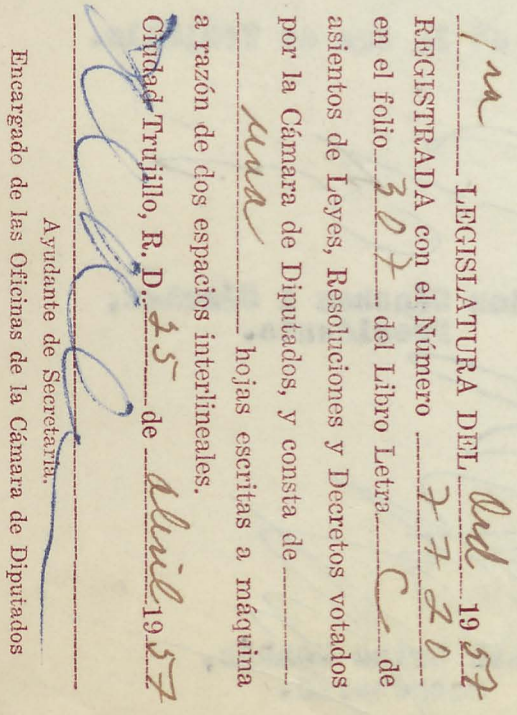 1ra LEGISLATURA DEL Ord 1957
REGISTRADA con el Número 7720
en el folio 307 del Libro Letra C de
asientos de Leyes, Resoluciones y Decretos votados
por la Cámara de Diputados, y consta de
una hojas escritas a máquina
a razón de dos espacios interlineales.
Ciudad Trujillo, R. D. 25 de abril 1957
Ayudante de Secretaría.
Encargado de las Oficinas de la Cámara de Diputados